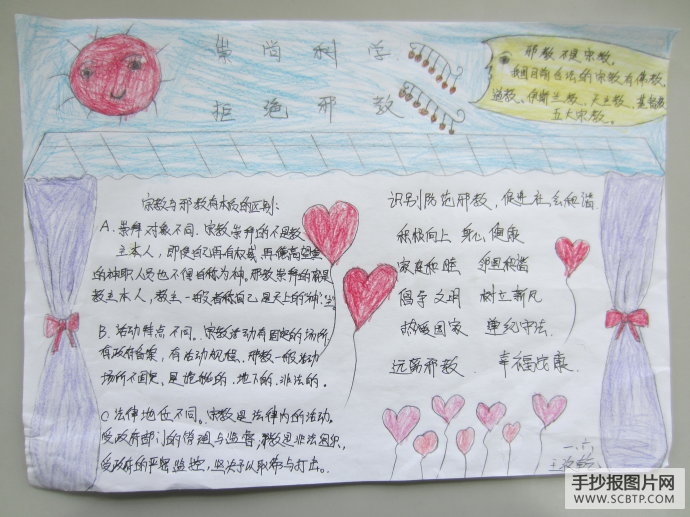 崇尚科学
拒绝邪教
邪教不是宗教,
我国目前合法的宗教有佛教,
道教、伊斯兰教、天主教、基督教
五大宗教。
宗教与邪教有本质的区别:
A、崇拜对象不同。宗教崇拜的不是教
主本人,即使自己再有权威,再德高望重
的神职人员也不得自称为神。邪教崇拜的就是
教主本人,教主一般者称自己是天上的神
B、活动特点不同。宗教活动有固定的场所
有政府备案,有活动规程、邪教一般活动
场所不固定,是诡秘的、地下的、非法的。
C、法律地位不同。宗教是法律内的活动。
受政府部门的管理与监督,邪教是非法组织,
受政府的严密监控,坚决予以取缔与打击。
识别防范邪教,促进社会和谐
积极向上 身心健康
家庭和睦 邻里和谐
倡导文明 树立新风
热爱国家 遵纪守法
远离邪教 幸福安康
一、六
手抄报图片网
WWW.SCBTP.COM